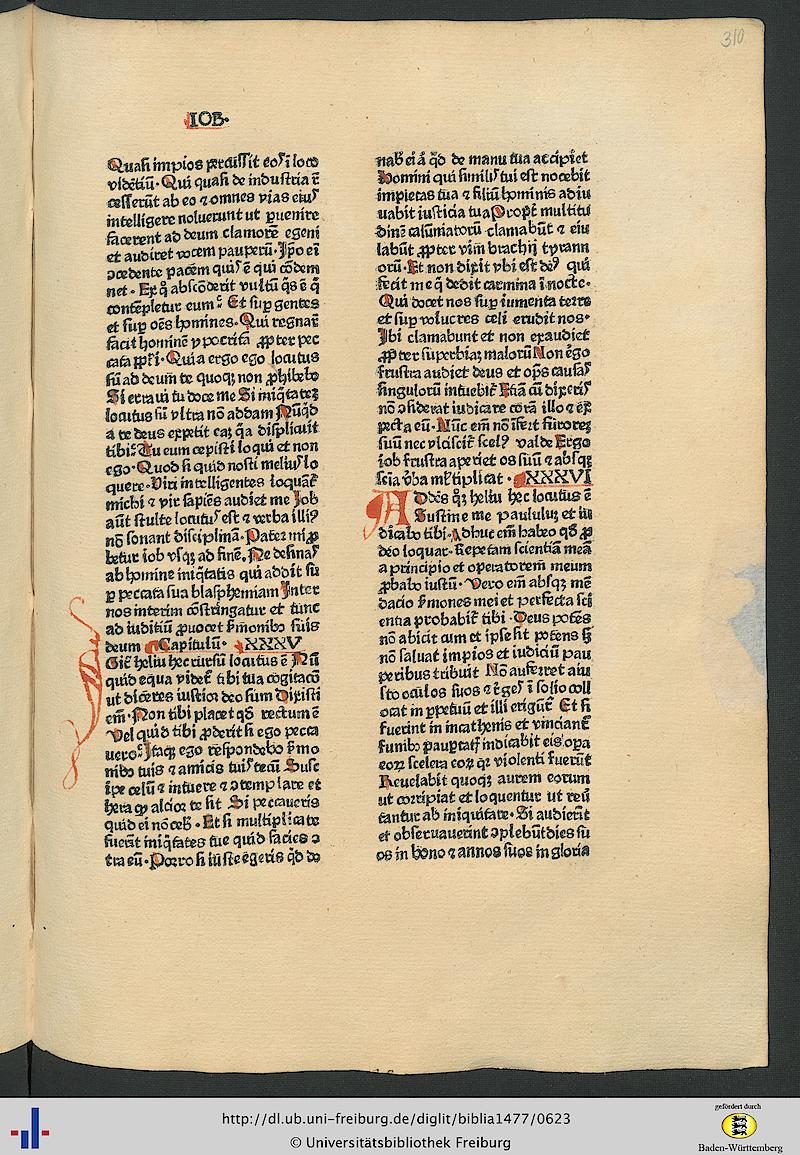 310
IOB·
Quasi impios percussit eoſ ī loco
vidētiū· Qui quasi de industria r̄
cesserūt ab eo ⁊ omnes vias eiuſ
intelligere noluerunt ut ꝑuenire
facerent ad deum clamorē egeni
et audiret vocem pauperū· Ipo eī
ↄcedente pacēm quiſ ē qui cōdem
net· Ex q̊ abscōderit vultū q̄s ē q̄
contēpletur eum: Et suꝑ gentes
et suꝑ oēs homines· Qui regnar̄
facit hominē ypocrita ꝓpter pec
cata pp̄li· Quia ergo ego locutus
sū ad deum te quoqꝫ non ꝓhibebo
Si erraui tu doce me Si iniq̄tatēꝫ
locutus sū vltra nō addam Nūqd̄
a te deus expetit eaꝫ q̄a displicuit
tibi: Tu eum cepisti loqui et non
ego· Quod si quid nosti meliuſ lo
quere· Viri intelligentes loquant̄
michi ⁊ vir sapiēs audiet me Iob
aūt stulte locutuſ est ⁊ verba illiꝰ
nō sonant disciplinā· Pater mi ꝓ
betur iob vsqꝫ ad finē. Ne desinaſ
ab homine iniq̄tatis qui addit su
ꝑ peccata sua blasphemiam Inter
nos interim cōstringatur et tunc
ad iuditiū ꝓuocet s̄monibꝰ suis
deum Capitulū· XXXV
Git̄ heliu hec rursū locutus ē Nū
quid equa videt̄ tibi tua cogitacō
ut diceres iustior deo sum Dixisti
em̄· Non tibi placet qd̄ rectum ē
Vel quid tibi ꝓderit si ego pecca
uero: Itaqꝫ ego respondebo s̄mo
nibꝰ tuis ⁊ amicis tuiſ tecū Susc
ip̄e celū ⁊ intuere ⁊ ↄtemplare et
hera qꝫ alcior te sit Si peccaueris
quid ei nōceb̄· Et si multiplicate
fuerīt iniq̄tates tue quid facies ↄ
tra eū· Porro si iuste egeris qd̄ do
nab̄ ei ā qd̄ de manu tua accipiet
Homini qui similiſ tui est nocebit
impietas tua ⁊ filiū hominis adiu
uabit iusticia tua Propt̄ multitu
dinē calūniatorū clamabūt ⁊ eiu
labūt ꝓpter vim brachij tyrann
orū· Et non dixit vbi est deꝰ qui
fecit me q̄ dedit carmina ī nocte·
Qui docet nos suꝑ iumenta terre
et suꝑ volucres celi erudit nos·
Ibi clamabunt et non exaudiet
ꝓpter superbiaꝫ malorū Non ergo
frustra audiet deus et op̄s causaſ
singulorū intuebit̄ Etiā cū dixeriſ
nō ↄsiderat iudicare corā illo ⁊ ex̄
pecta eū· Nūc em̄ nō īfert furoreꝫ
suū nec vlciscit̄ scelꝰ valde Ergo
iob frustra aperiet os suū ⁊ absqꝫ
scīa v̄ba ml̄tiplicat· XXXVI
Addēs qꝫ heliu hec locutus ē
Sustine me paululuꝫ et in
dicabo tibi· Adhuc em̄ habeo qd̄ ꝓ
deo loquar· Repetam scientiā meā
a principio et operatorem meum
ꝓbabo iustū· Vero em̄ absqꝫ mē
dacio s̄mones mei et perfecta sci
entia probabit̄ tibi· Deus potēs
nō abicit cum et ipse sit potens s̄
nō saluat impios et iudiciū pau
peribus tribuit Nō auferet a iu
sto oculos suos ⁊ regeſ ī solio coll
ocat in ꝑpetuū et illi erigūt̄ Et si
fuerint in cathenis et vinciant̄
funibꝰ pauꝑtatſ indicabit eis oꝑa
eoꝝ scelera eoꝝ qꝛ violenti fuerūt
Reuelabit quoqꝫ aurem eorum
ut corripiat et loquentur ut reu̅
tantur ab iniquitate· Si audierīt
et obseruauerint ↄplebūt dies su
os in bono ⁊ annos suos in gloria
http://dl.ub.uni-freiburg.de/diglit/biblia1477/0623
© Universitätsbibliothek Freiburg
gefördert durch
Baden-Württemberg